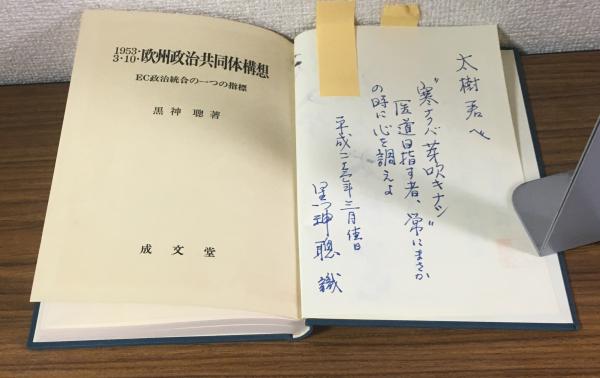 1953・3・10・欧州政治共同体構想
EC政治統合の一つの指標
黒神聰著
成文堂
太樹君へ
“寒ナクバ芽吹キナシ”
医道目指す者、常にまさか
の時に心を調えよ
平成二十年三月佳日
黒神聰識